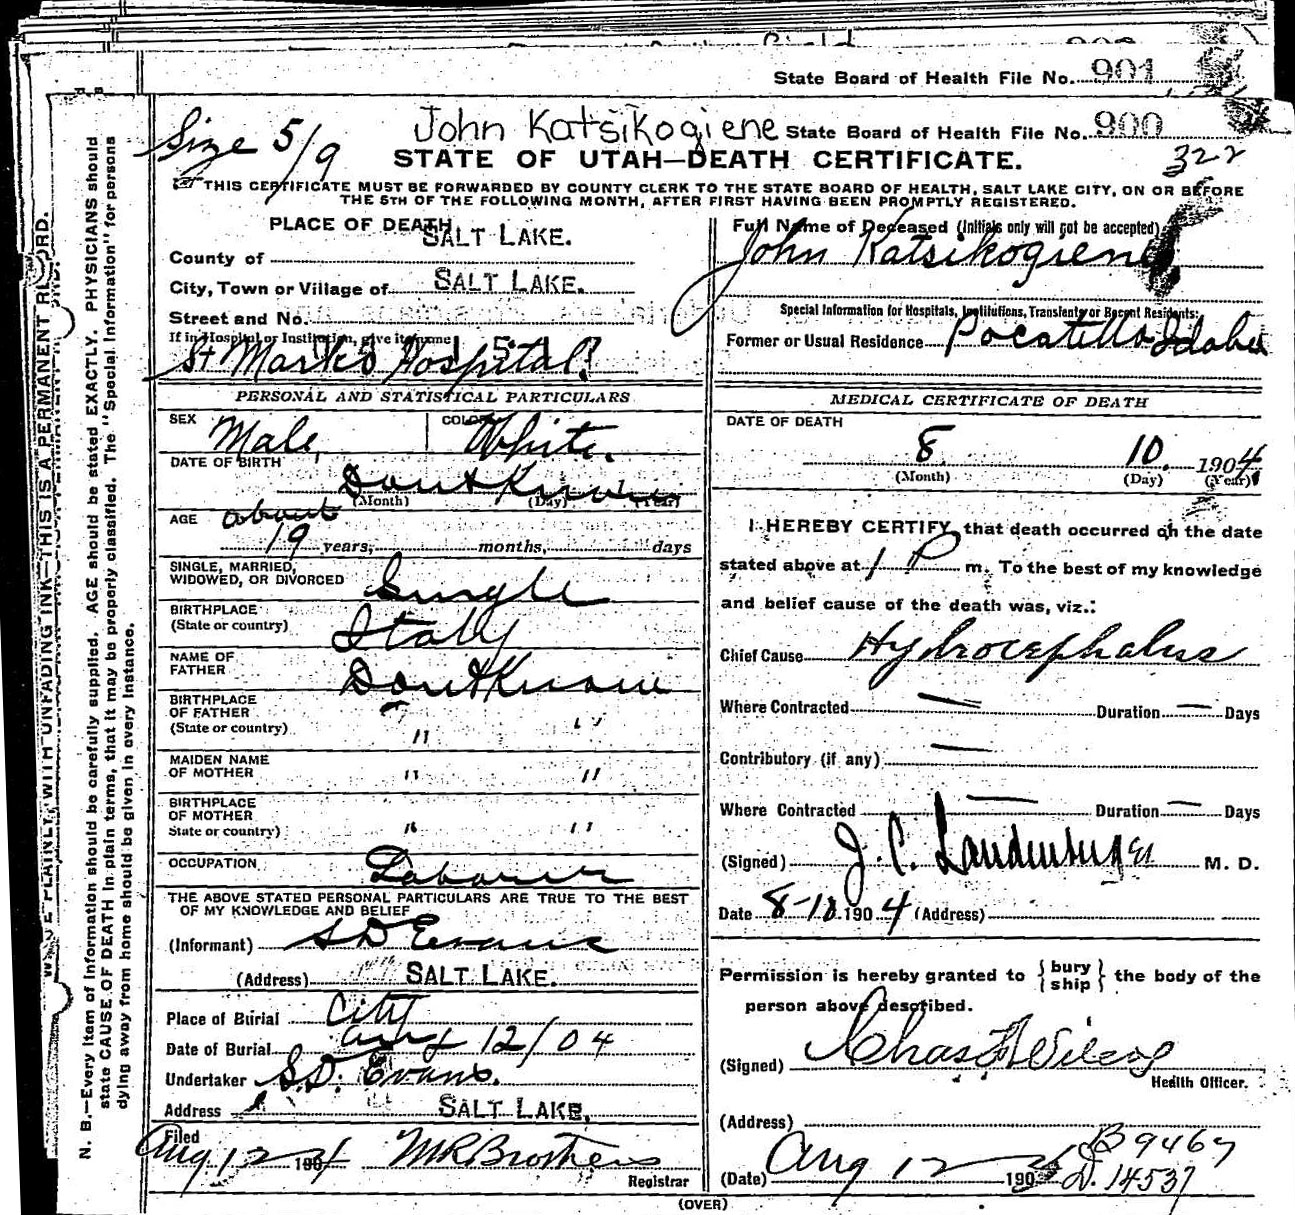 State Board of Health File No. 901
Size 5/9
John Katsikogiene State Board of Health File No. 900
322
STATE OF UTAH—DEATH CERTIFICATE.
THIS CERTIFICATE MUST BE FORWARDED BY COUNTY CLERK TO THE STATE BOARD OF HEALTH, SALT LAKE CITY, ON OR BEFORE
THE 5TH OF THE FOLLOWING MONTH, AFTER FIRST HAVING BEEN PROMPTLY REGISTERED.
PLACE OF DEATH
County of SALT LAKE.
City, Town or Village of SALT LAKE.
Street and No.
If in Hospital or Institution, give its name
St Mark's Hospital
PERSONAL AND STATISTICAL PARTICULARS
SEX Male COLOR White.
DATE OF BIRTH Dont Know
(Month) (Day) (Year)
AGE about
19 years, months, days
SINGLE, MARRIED,
WIDOWED, OR DIVORCED Single
BIRTHPLACE
(State or country) Italy
NAME OF
FATHER Dont Know
BIRTHPLACE
OF FATHER
(State or country) " "
MAIDEN NAME
OF MOTHER " "
BIRTHPLACE
OF MOTHER
State or country) " "
OCCUPATION Laborer
THE ABOVE STATED PERSONAL PARTICULARS ARE TRUE TO THE BEST
OF MY KNOWLEDGE AND BELIEF
(Informant) S D Evans
(Address) SALT LAKE.
Place of Burial City
Date of Burial Aug 12/04
Undertaker S.D. Evans.
Address SALT LAKE.
Filed
Aug 12 1904 M R Brothers
Registrar
Full Name of Deceased (Initials only will not be accepted)
John Katsikogiene
Special Information for Hospitals, Institutions, Transients or Recent Residents:
Former or Usual Residence Pocatello Idaho
MEDICAL CERTIFICATE OF DEATH
DATE OF DEATH
8 10. 1904
(Month) (Day) (Year)
I HEREBY CERTIFY, that death occurred on the date
stated above at 1 P m. To the best of my knowledge
and belief cause of the death was, viz.:
Chief Cause Hydrocephalus
Where Contracted — Duration — Days
Contributory (if any) —
Where Contracted — Duration — Days
(Signed) J. C. Landenberger M. D.
Date 8-10 1904 (Address)
Permission is hereby granted to { bury
ship } the body of the
person above described.
(Signed) Chas F Wilcox
Health Officer.
(Address)
B 9467
(Date) Aug 12 190 D. 14537
(OVER)
N. B.—Every item of information should be carefully supplied. AGE should be stated EXACTLY. PHYSICIANS should
state CAUSE OF DEATH in plain terms, that it may be properly classified. The "Special Information" for persons
dying away from home should be given in every instance.
PLAINLY WITH UNFADING INK—THIS IS A PERMANENT RECORD.